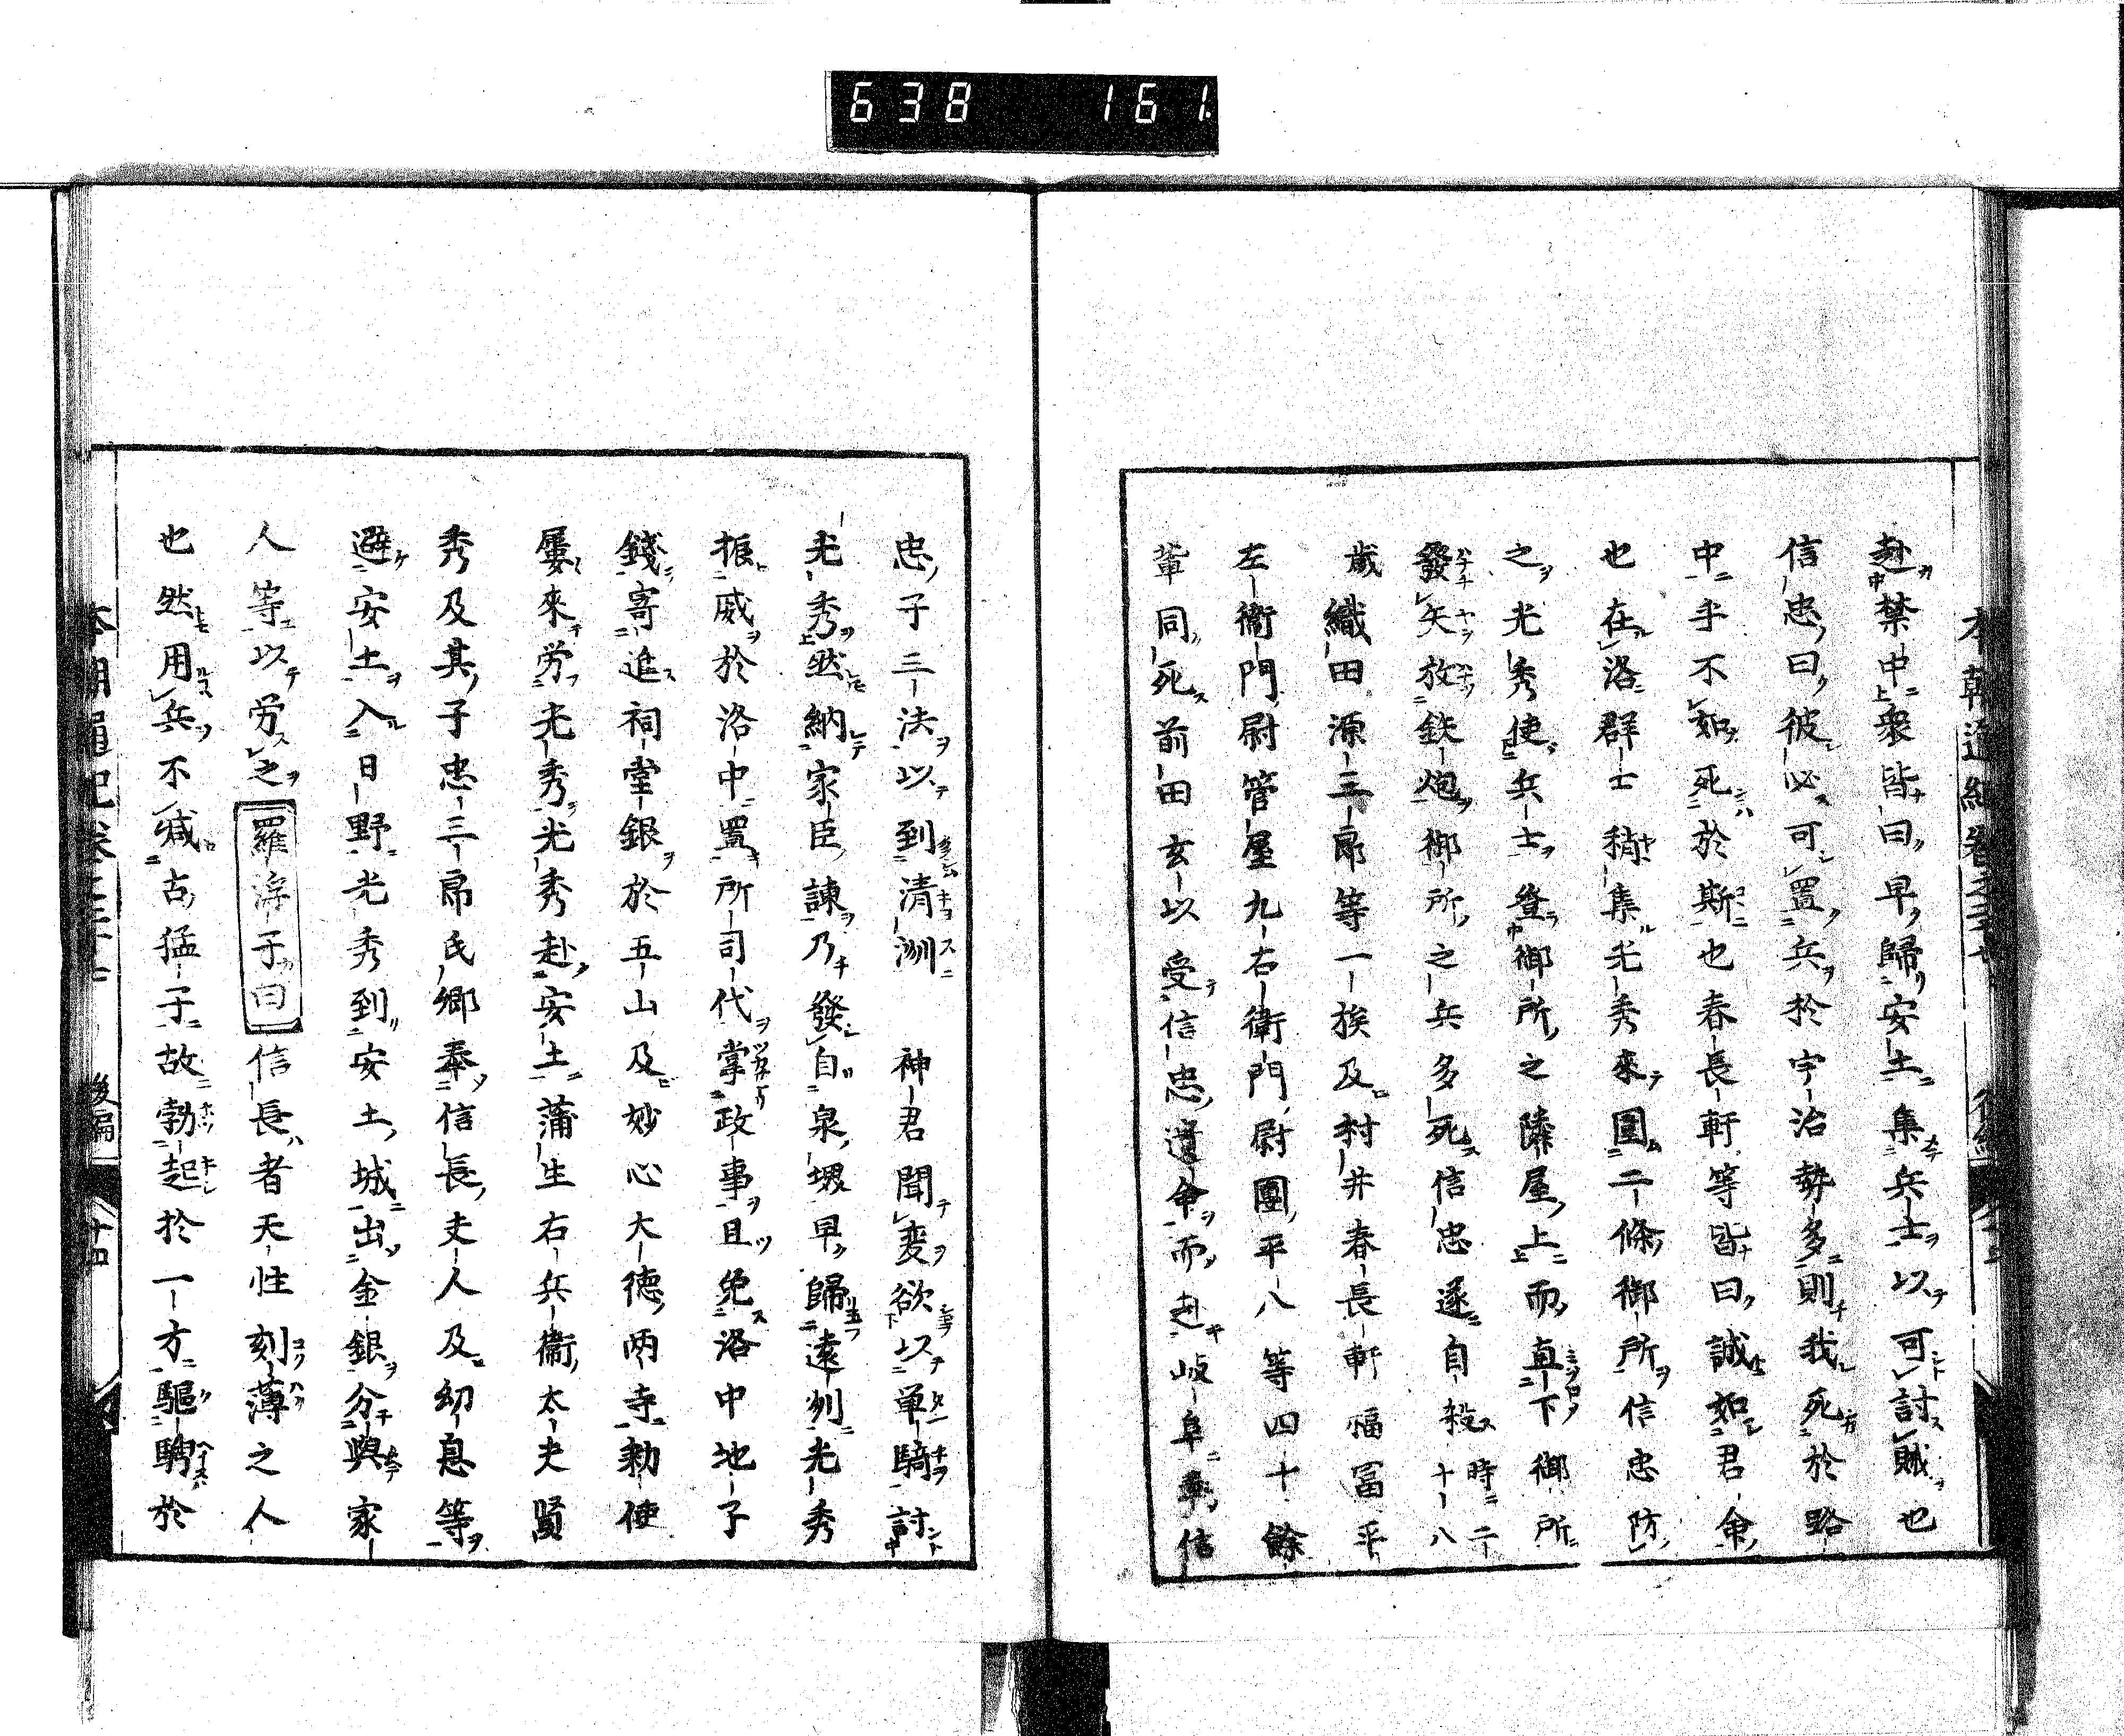 638 161
赴禁中衆皆曰早歸安土集兵士以可討賊也
信忠曰彼必可置兵於宇治勢多則我死於路
中乎不如死於斯也春長軒等皆曰誠如君命
也在洛群士稍集光秀來圍二條御所信忠防
之光秀使兵士登御所之隣屋上而直下御所
發矢放鉄炮御所之兵多死信忠遂自殺時二十八
歲織田源三郎等一族及村井春長軒福冨平
左衞門尉管屋九右衞門尉團平八等四十餘
輩同死前田玄以受信忠遺命而赴岐阜奉信
忠子三法以到清洲 神君聞変欲以単騎討
光秀然納家臣諫乃發自泉堺早歸遠列光秀
振威於洛中置所司代掌政事且免洛中地子
錢寄進祠堂銀於五山及妙心大德兩寺勅使
屢來労光秀光秀赴安土蒲生右兵衞太夫賢
秀及其子忠三郎氏郷奉信長夫人及幼息等
避安土入日野光秀到安土城出金銀分與家
人等以労之羅浮子曰信長者天性刻薄之人
也然用兵不減古猛子故勃起於一方驅騁於
本朝通紀卷 後編 十四